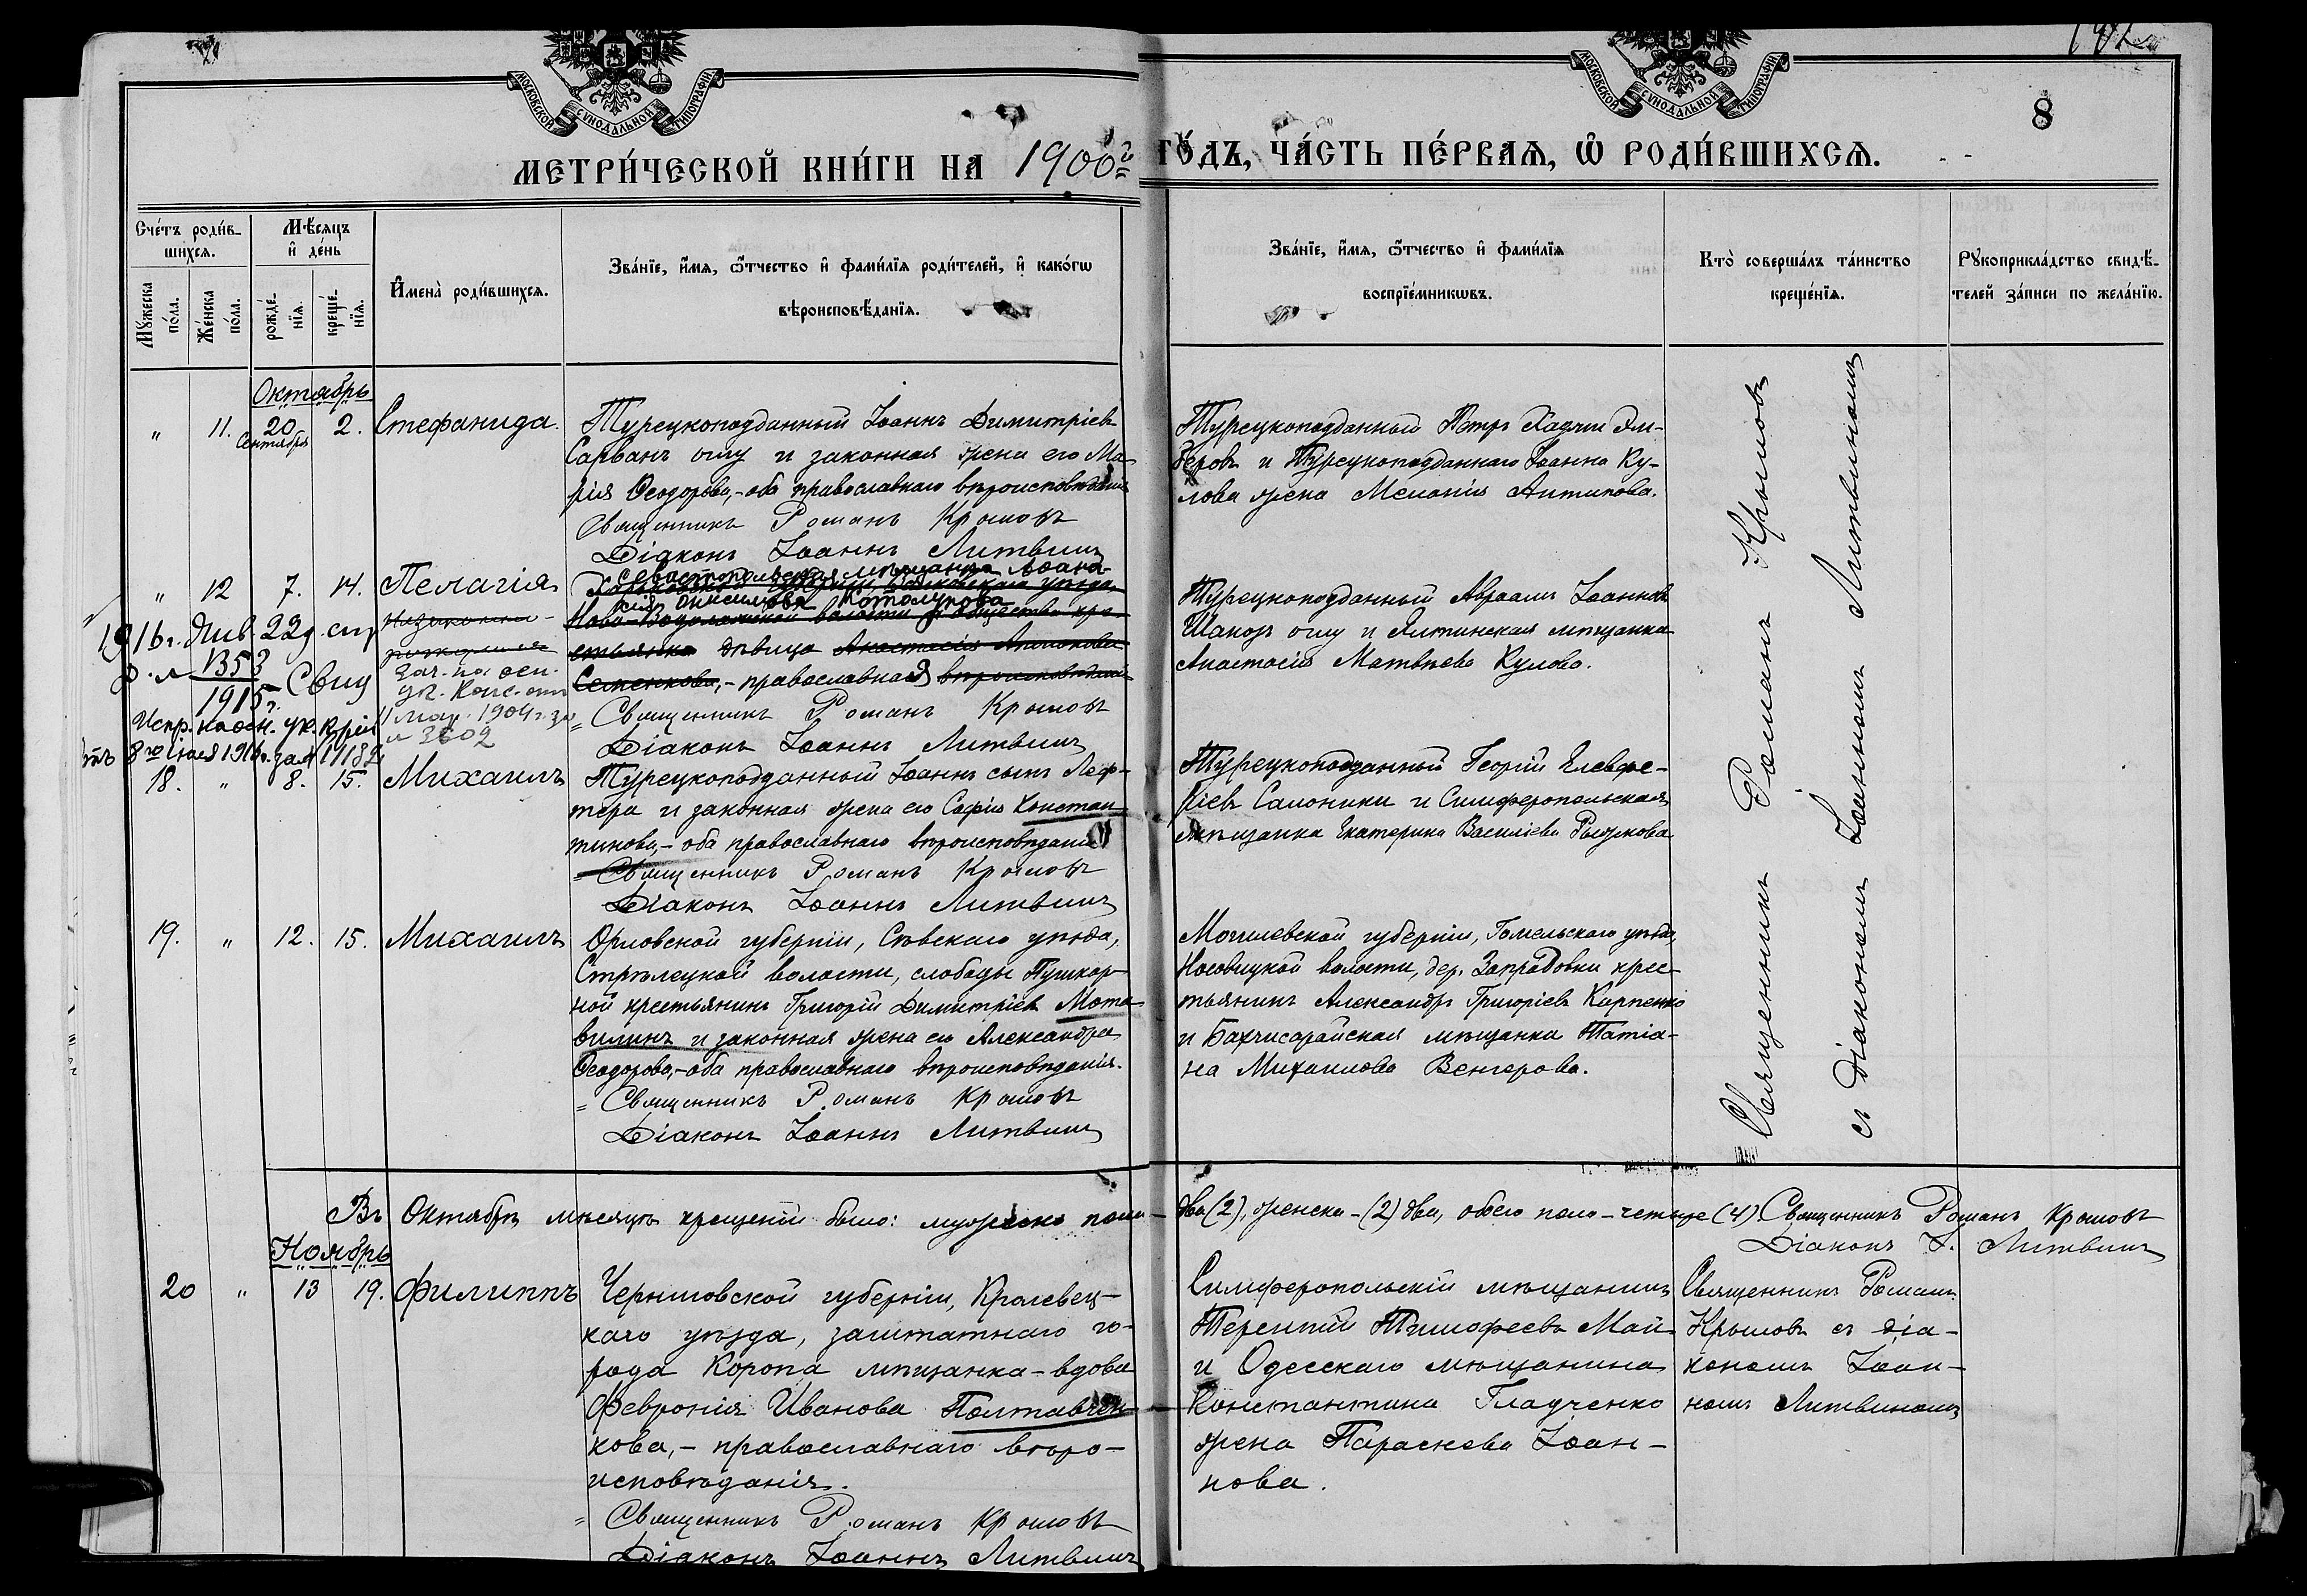 МОСКОВСКОЙ СѴНОДАЛЬНОЙ ТИПОГРАФІИ
МОСКОВСКОЙ СѴНОДАЛЬНОЙ ТИПОГРАФІИ
8
МЕТРИ́ЧЕСКОЙ КНИ́ГИ НА 1900й ГО́ДЪ, ЧА́СТЬ ПЕ́РВАЯ, Ѡ РОДИ́ВШИХСЯ.
Сче́тъ роди́в-
шихся.
Мѣ́сяцъ
и҆ де́нь
Мꙋ́жеска
по́ла.
Же́нска
по́ла.
рожде́-
нїя.
креще́-
нїя.
И҆мена̀ роди́вшихся.
Зва́нїе, и҆́мя, ѻ҆́тчество и҆ фами́лїя роди́телей, и҆ како́гѡ
вѣроисповѣ́данїя.
Зва́нїе, и҆́мя, ѻ҆́тчество и҆ фами́лїя
воспрїе́мникѡвъ.
Кто̀ соверша́лъ та́инство
креще́нїя.
Рꙋкоприкла́дство свидѣ́-
телей за́писи по жела́нїю.
Октябрь
" 11. 20 Сентября 2. Стефанида.
Турецкоподданный Іоаннъ Димитріевъ
Сарванъ оглу и законная жена его Ма-
рія Ѳеодорова,- оба православнаго вѣроисповѣданія
Священникъ Романъ Крыловъ
Діаконъ Іоаннъ Литвинъ
Турецкоподданный Петръ Хаджи Ям-
беровъ и Турецкоподданнаго Іоанна Ку-
лова жена Меланія Антипова.
Священникъ Романъ Крыловъ
съ діакономъ Іоанномъ Литвиномъ
" 12 7. 14. Пелагія
Севастопольская мѣщанка
Ново-Водолажской волости
дѣвица Анастасія
Семенкова,- православная вѣроисповѣданія
Священникъ Романъ Крыловъ
Діаконъ Іоаннъ Литвинъ
Турецкоподданный Авраамъ Іоанновъ
Шахозъ оглу и Ялтинская мѣщанка
Анастасія Матвѣева Кулова.
1916г. Янв. 22д.
1353
1915г. Свид
Испр. на осн. ук.
8го 1916г. за № 11182
11 мар. 1904 г. за
№ 3602
18. " 8. 15. Михаилъ
Турецкоподданный Іоаннъ сынъ Леф-
тера и законная жена его Софія Констан-
тинова,- оба православнаго вѣроисповѣданія
Священникъ Романъ Крыловъ
Діаконъ Іоаннъ Литвинъ
Турецкоподданный Георгій Елевфе-
ріевъ Салоники и Симферопольская
мѣщанка Екатерина Василіева Рыжкова
19. " 12. 15. Михаилъ
Орловской губерніи, Сѣвскаго уѣзда,
Стрѣлецкой волости, слободы Пушкар-
ной крестьянинъ Григорій Димитріевъ Мото-
вилинъ и законная жена его Александра
Ѳеодорова,- оба православнаго вѣроисповѣданія.
Священникъ Романъ Крыловъ
Діаконъ Іоаннъ Литвинъ
Могилевской губерніи, Гомельскаго уѣзда,
Носовицкой волости, дер. Запрадовки крес-
тьянинъ Александръ Григоріевъ Карпенко
и Бахчисарайская мѣщанка Татіа-
на Михаилова Венгерова.
Въ Октябрѣ мѣсяцѣ крещеній было: мужеска пола - два (2), женска - (2) два, обоего пола - четыре (4). Священникъ Романъ Крыловъ
Діаконъ І. Литвинъ
Ноябрь
20 " 13 19. Филиппъ
Черниговской губерніи, Кролевец-
каго уѣзда, заштатнаго го-
рода Коропа мѣщанка - вдова
Февронія Иванова Полтавчен-
кова,- православнаго вѣро-
исповѣданія.
Священникъ Романъ Крыловъ
Діаконъ Іоаннъ Литвинъ
Симферопольскій мѣщанинъ
Терентій Тимофеевъ Май
и Одесскаго мѣщанина
Константина Гладченко
жена Параскева Іоан-
нова.
Священникъ Романъ
Крыловъ съ діа-
кономъ Іоан-
номъ Литвиномъ